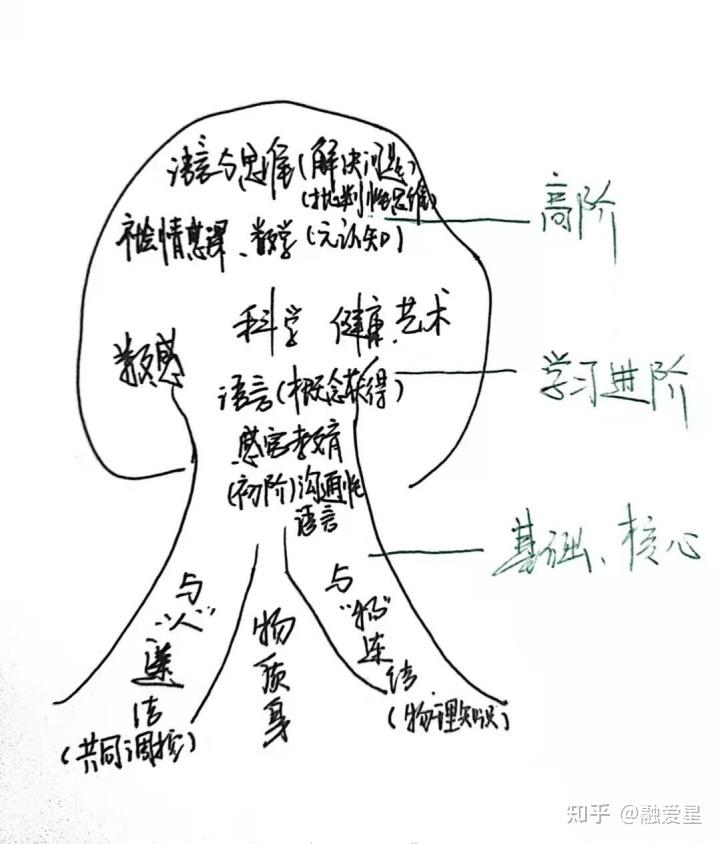 语言与思维(解决问题)
(批判性思维)
高阶
社会情感课、数学(元认知)
科学 健康、艺术
数感
学习进阶
语言(概念获得)
感官教育
(初阶)沟通性
语言
基础、核心
与
"人"
连
结
(共同调控)
物
质
身
与
"物"
连
结
(物理知识)
知乎 @融爱星